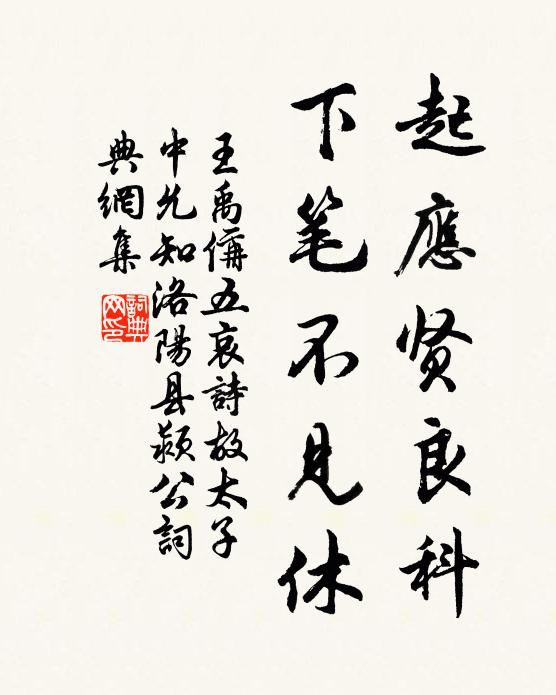 起應贤良科
下笔不見休
王禹偁五哀詩故太子
中允知洛陽县颍公詞
典網集
詞典网印